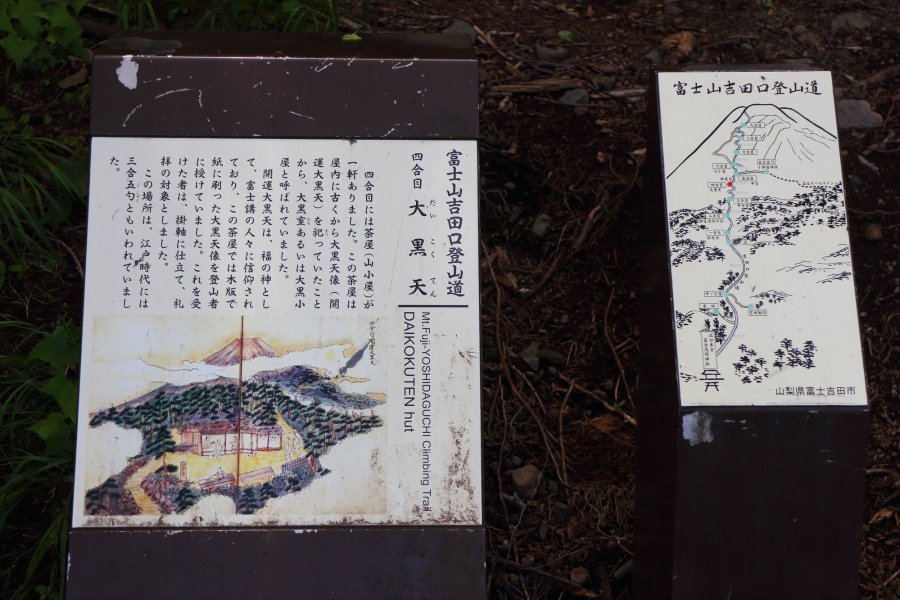 富士山吉田口登山道
四合目 大黒天
だいこくてん
Mt.Fuji-YOSHIDAGUCHI Climbing Trail
DAIKOKUTEN hut
四合目には茶屋(山小屋)が
一軒ありました。この茶屋は
屋内に古くから大黒天像(開
運大黒天)を祀っていたこと
から、大黒室あるいは大黒小
屋と呼ばれていました。
開運大黒天は、福の神とし
て、富士講の人々に信仰され
ており、この茶屋では木版で
紙に刷った大黒天像を登山者
に授けていました。これを受
けた者は、掛軸に仕立て、礼
拝の対象としました。
この場所は、江戸時代には
三合五勺ともいわれていまし
た。
富士山吉田口登山道
山梨県富士吉田市